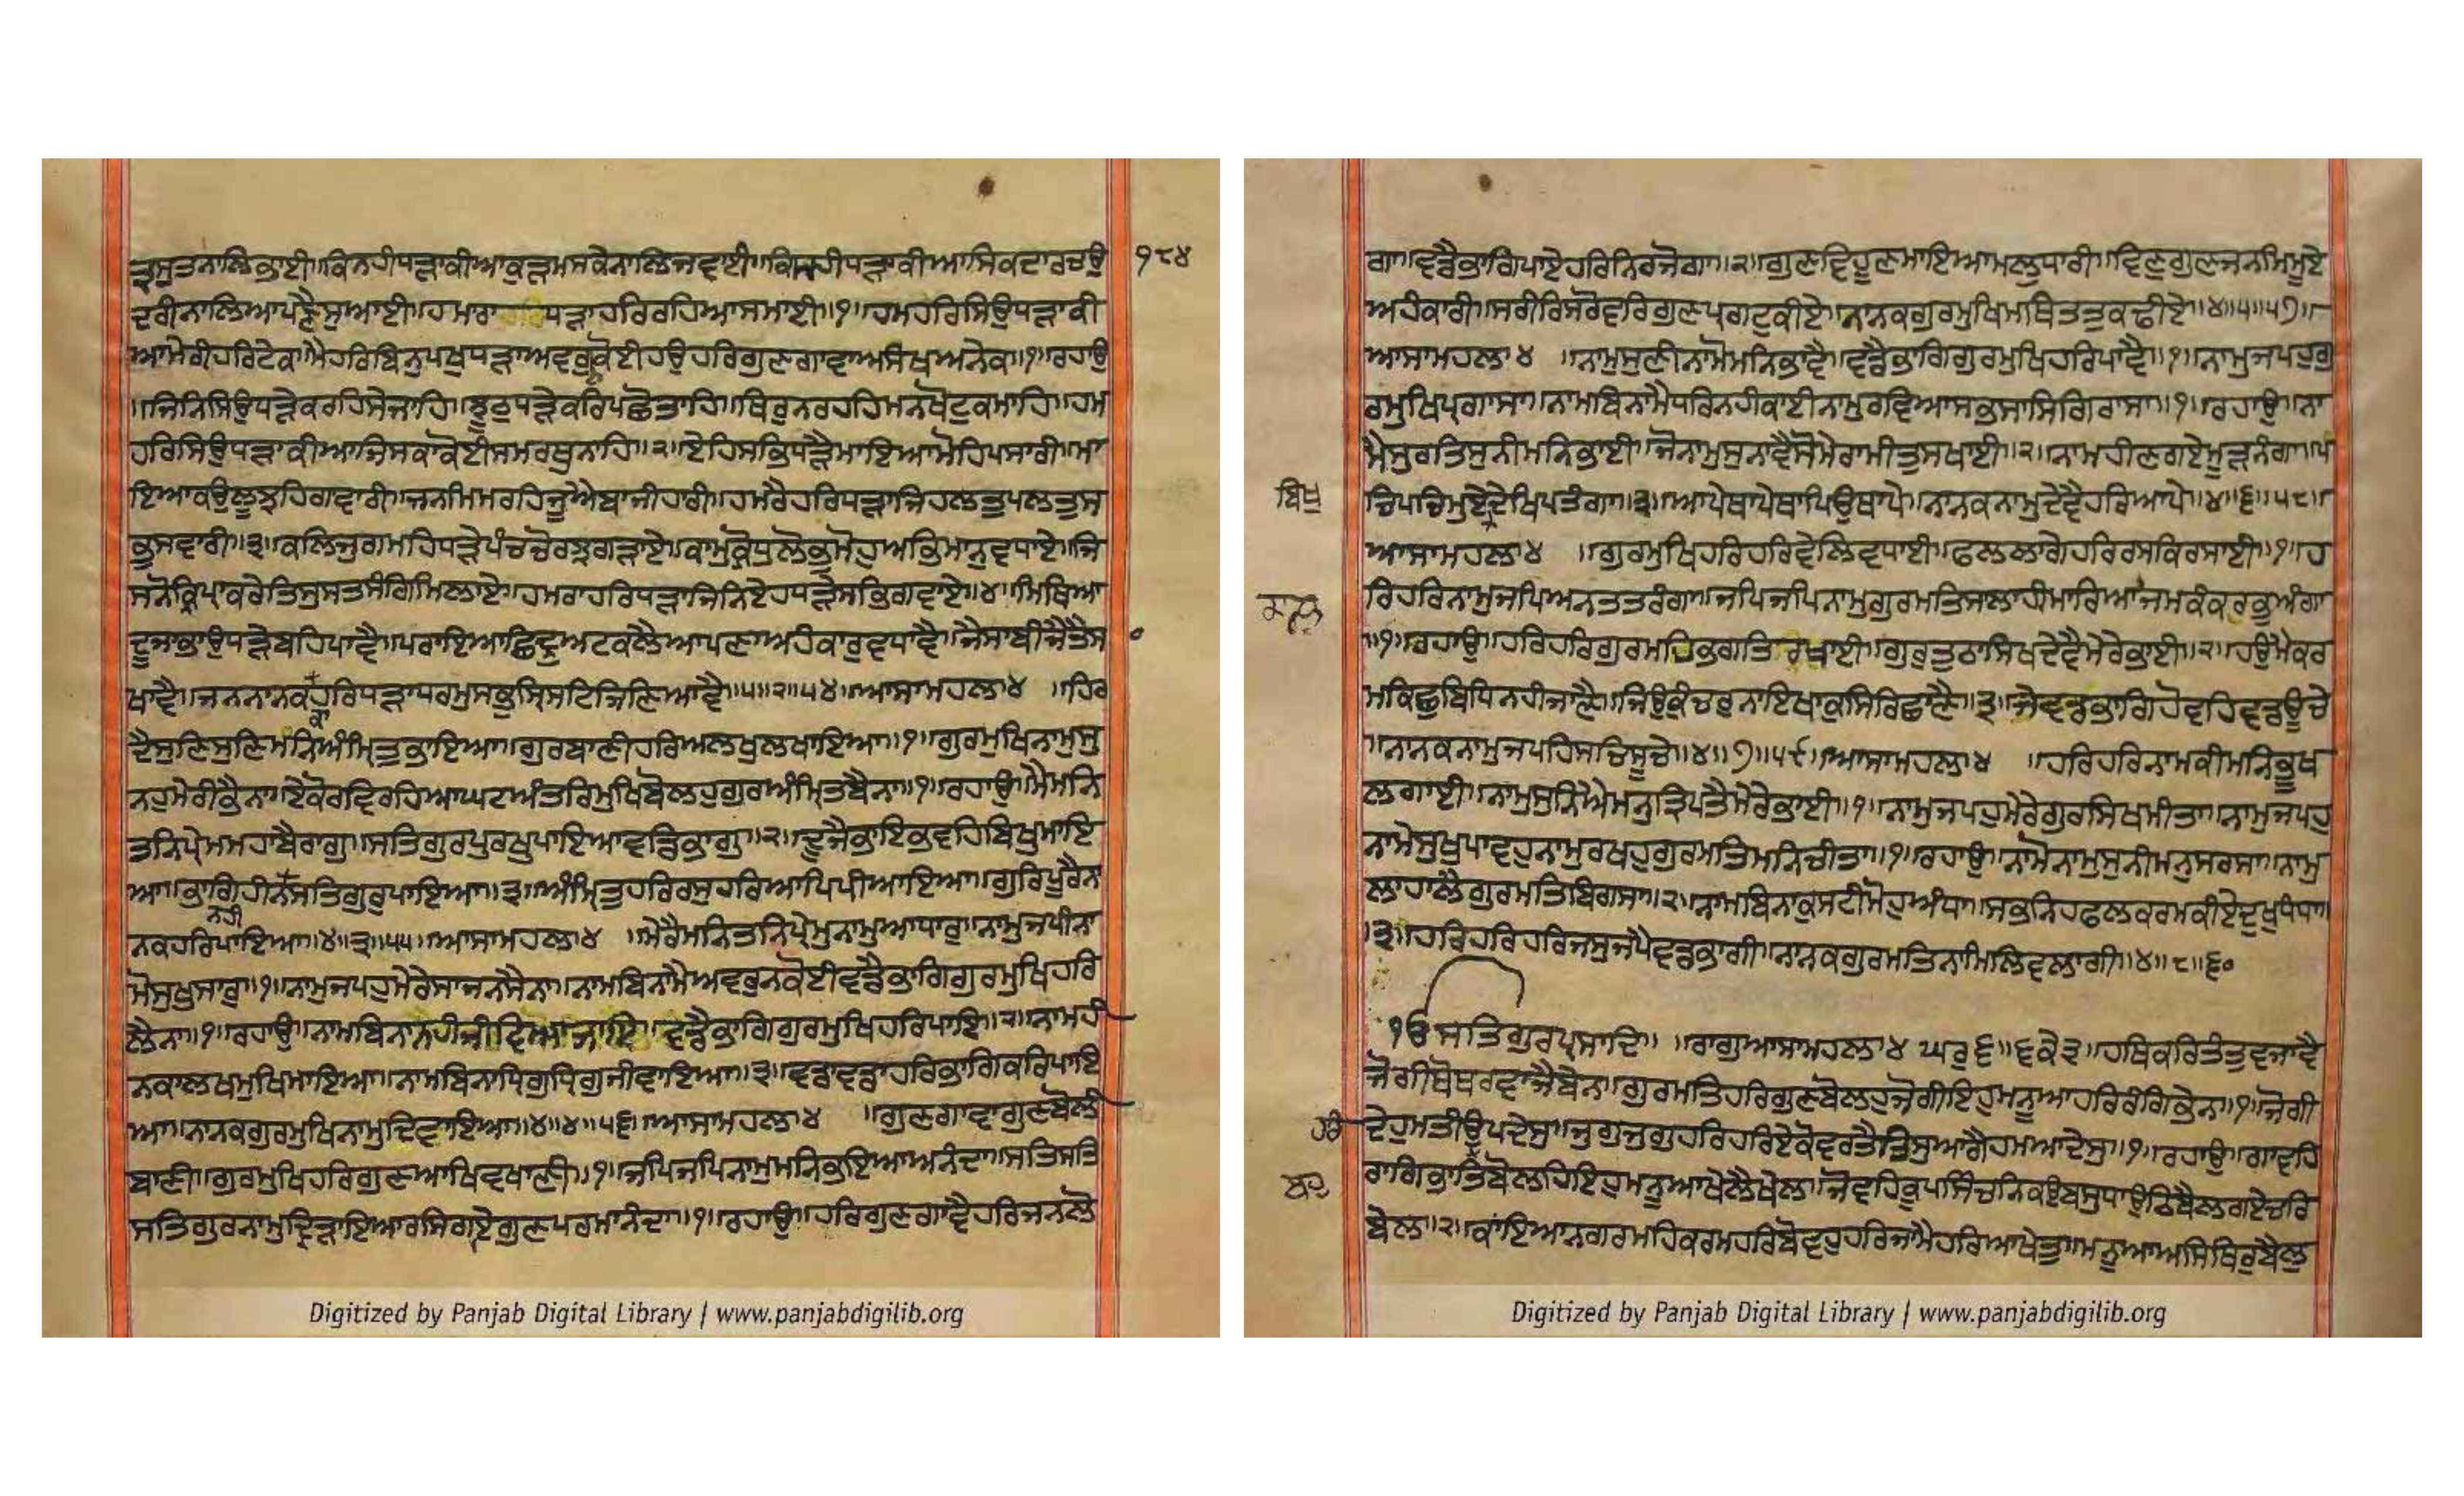 ਤ੍ਰਸੁਤਨਾਲਿਭਾਈ॥ਕਿਨਹੀਧੜਾਕੀਆਕੁੜਮਸਕੇਨਾਲਿਜਵਾਈ॥ਕਿਨਹੀਧੜਾਕੀਆਸਿਕਦਾਰਚਉ ੧੮੪
ਧਰੀਨਾਲਿਆਪਣੈਸੁਆਈ॥ਹਮਾਰਾ ਧੜਾਹਰਿਰਹਿਆਸਮਾਈ॥੧॥ਹਮਹਰਿਸਿਉਧੜਾਕੀ
ਆਮੇਰੀਹਰਿਟੇਕ॥ਮੈਹਰਿਬਿਨੁਪਖੁਧੜਾਅਵਰੁਕੋਈਹਉਹਰਿਗੁਣਗਾਵਾਅਸੰਖਅਨੇਕ॥੧॥ਰਹਾਉ
॥ਜਿਨਿਸਿਉਧੜੇਕਰਹਿਸੇਜਾਹਿ॥ਝੂਠੁਧੜੇਕਰਿਪਛੋਤਾਹਿ॥ਥਿਰੁਨਰਹਹਿਮਨਖੋਟੁਕਮਾਹਿ॥ਹਮ
ਹਰਿਸਿਉਧੜਾਕੀਆਜਿਸਕਾਕੋਈਸਮਰਥੁਨਾਹਿ॥੨॥ਏਹਿਸਭਿਧੜੈਮਾਇਆਮੋਹਿਪਸਾਰੀ॥ਮਾ
ਇਆਕਉਲੂਝਹਿਗਾਵਾਰੀ॥ਜਨਮਿਮਰਹਿਜੂਐਬਾਜੀਹਾਰੀ॥ਹਮਰੈਹਰਿਧੜਾਜਿਹਲਤੁਪਲਤੁਸ
ਭੁਸਵਾਰੀ॥੩॥ਕਲਿਜੁਗਮਹਿਧੜੇਪੰਚਚੋਰਝਗੜਾਏ॥ਕਾਮੁਕ੍ਰੋਧੁਲੋਭੁਮੋਹੁਅਭਿਮਾਨੁਵਧਾਏ॥ਜਿ
ਸਨੋਕ੍ਰਿਪਾਕਰੇਤਿਸੁਸਤਸੰਗਿਮਿਲਾਏ॥ਹਮਰਾਹਰਿਧੜਾਜਿਨਿਏਹਧੜੇਸਭਿਗਵਾਏ॥੪॥ਮਿਥਿਆ
ਦੂਜਾਭਾਉਧੜੇਬਹਿਪਾਵੈ॥ਪਰਾਇਆਛਿਦ੍ਰੁਅਟਕਲੈਆਪਣਾਅਹੰਕਾਰੁਵਧਾਵੈ॥ਜੈਸਾਬੀਜੈਤੈਸ
ਖਾਵੈ॥ਜਨਨਾਨਕਹਰਿਧੜਾਧਰਮੁਸਭੁਸ੍ਰਿਸਟਿਜਿਣਿਆਵੈ॥੫॥੨॥੫੪॥ਆਸਾਮਹਲਾ੪ ॥ਹਿਰ
ਕਾ
ਦੈਸੁਣਿਸੁਣਿਮਨਿਅੰਮ੍ਰਿਤੁਭਾਇਆ॥ਗੁਰਬਾਣੀਹਰਿਅਲਖੁਲਖਾਇਆ॥੧॥ਗੁਰਮੁਖਿਨਾਮੁਸੁ
ਨਹੁਮੇਰੀਭੈਨਾ॥ਏਕੋਰਵਿਰਹਿਆਘਟਅੰਤਰਿਮੁਖਿਬੋਲਹੁਗੁਰਅੰਮ੍ਰਿਤਬੈਨਾ॥੧॥ਰਹਾਉ॥ਮੈਮਨਿ
ਤਨਿਪ੍ਰੇਮਮਹਾਬੈਰਾਗੁ॥ਸਤਿਗੁਰਪੁਰਖੁਪਾਇਆਵਡਿਭਾਗੁ॥੨॥ਦੂਜੈਭਾਇਭਵਹਿਬਿਖੁਮਾਇ
ਆ॥ਭਾਗਿਹੀਨਸਤਿਗੁਰੁਪਾਇਆ॥੩॥ਅੰਮ੍ਰਿਤੁਹਰਿਰਸੁਹਰਿਆਪਿਪੀਆਇਆ॥ਗੁਰਿਪੂਰੈਨ
ਨਹੀ
ਨਕਹਰਿਪਾਇਆ॥੪॥੩॥੫੫॥ਆਸਾਮਹਲਾ੪ ॥ਮੇਰੈਮਨਿਤਨਿਪ੍ਰੇਮੁਨਾਮੁਆਧਾਰੁ॥ਨਾਮੁਜਪੀਨਾ
ਮੋਸੁਖੁਸਾਰੁ॥੧॥ਨਾਮੁਜਪਹੁਮੇਰੇਸਾਜਨਸੈਨਾ॥ਨਾਮਬਿਨਾਮੈਅਵਰੁਨਕੋਈਵਡੈਭਾਗਿਗੁਰਮੁਖਿਹਰਿ
ਲੈਨਾ॥੧॥ਰਹਾਉ॥ਨਾਮਬਿਨਾਨਹੀਜੀਵਿਆਜਾਇ॥ਵਡੈਭਾਗਿਗੁਰਮੁਖਿਹਰਿਪਾਇ॥੨॥ਨਾਮਹੀ
ਨਕਾਲਖਮੁਖਿਮਾਇਆ॥ਨਾਮਬਿਨਾਧ੍ਰਿਗੁਧ੍ਰਿਗੁਜੀਵਾਇਆ॥੩॥ਵਡਾਵਡਾਹਰਿਭਾਗਿਕਰਿਪਾਇ
ਆ॥ਨਾਨਕਗੁਰਮੁਖਿਨਾਮੁਦਿਵਾਇਆ॥੪॥੪॥੫੬॥ਆਸਾਮਹਲਾ੪ ॥ਗੁਣਗਾਵਾਗੁਣਬੋਲੀ
ਬਾਣੀ॥ਗੁਰਮੁਖਿਹਰਿਗੁਣਆਖਿਵਖਾਣੀ॥੧॥ਜਪਿਜਪਿਨਾਮੁਮਨਿਭਇਆਅਨੰਦਾ॥ਸਤਿਸਤਿ
ਸਤਿਗੁਰਨਾਮੁਦ੍ਰਿੜਾਇਆਰਸਿਗਾਏਗੁਣਪਰਮਾਨੰਦਾ॥੧॥ਰਹਾਉ॥ਹਰਿਗੁਣਗਾਵੈਹਰਿਜਨਲੋ
Digitized by Panjab Digital Library | www.panjabdigilib.org
ਗਾ॥ਵਡੈਭਾਗਿਪਾਏਹਰਿਨਿਰਜੋਗਾ॥੨॥ਗੁਣਵਿਹੂਣਮਾਇਆਮਲੁਧਾਰੀ॥ਵਿਣੁਗੁਣਜਨਮਿਮੂਏ
ਅਹੰਕਾਰੀ॥ਸਰੀਰਿਸਰੋਵਰਿਗੁਣਪਰਗਟੁਕੀਏ॥ਨਾਨਕਗੁਰਮੁਖਿਮਥਿਤਤੁਕਢੀਏ॥੪॥੫॥੫੭॥
ਆਸਾਮਹਲਾ੪ ॥ਨਾਮੁਸੁਣੀਨਾਮੋਮਨਿਭਾਵੈ॥ਵਡੈਭਾਗਿਗੁਰਮੁਖਿਹਰਿਪਾਵੈ॥੧॥ਨਾਮੁਜਪਹੁਗੁ
ਰਮੁਖਿਪ੍ਰਗਾਸਾ॥ਨਾਮਬਿਨਾਮੈਧਰਿਨਹੀਕਾਈਨਾਮੁਰਵਿਆਸਭਸਾਸਿਗਿਰਾਸਾ॥੧॥ਰਹਾਉ॥ਨਾ
ਮੈਸੁਰਤਿਸੁਨੀਮਨਿਭਾਈ॥ਜੋਨਾਮੁਸੁਨਾਵੈਸੋਮੇਰਾਮੀਤੁਸਖਾਈ॥੨॥ਨਾਮਹੀਣਗਏਮੂੜਨੰਗਾ॥ਪ
ਬਿਖੁ ਚਿਪਚਿਮੁਏਦੇਖਿਪਤੰਗਾ॥੩॥ਆਪੇਥਾਪੇਥਾਪਿਉਥਾਪੇ॥ਨਾਨਕਨਾਮੁਦੇਵੈਹਰਿਆਪੇ॥੪॥੬॥੫੮॥
ਆਸਾਮਹਲਾ੪ ॥ਗੁਰਮੁਖਿਹਰਿਹਰਿਵੇਲਿਵਧਾਈ॥ਫਲਲਾਗੇਹਰਿਰਸਕਿਰਸਾਈ॥੧॥ਹ
ਰਿਹਰਿਨਾਮੁਜਪਿਅਨਤਤਰੰਗਾ॥ਜਪਿਜਪਿਨਾਮੁਗੁਰਮਤਿਸਲਾਹੀਮਾਰਿਆਜਮਕੰਕਰਭੁਅੰਗਾ
॥੧॥ਰਹਾਉ॥ਹਰਿਹਰਿਗੁਰਮਹਿਭਗਤਿਰਖਾਈ॥ਗੁਰੁਤੁਠਾਸਿਖਦੇਵੈਮੇਰੇਭਾਈ॥੨॥ਹਉਮੈਕਰ
ਮਕਿਛੁਬਿਧਿਨਹੀਜਾਣੈ॥ਜਿਉਕੁੰਚਰੁਨਾਇਖਾਕੁਸਿਰਿਛਾਣੈ॥੩॥ਜੇਵਡਭਾਗਿਹੋਵਹਿਵਡਊਚੇ
॥ਨਾਨਕਨਾਮੁਜਪਹਿਸਚਿਸੂਚੇ॥੪॥੭॥੫੯॥ਆਸਾਮਹਲਾ੪ ॥ਹਰਿਹਰਿਨਾਮਕੀਮਨਿਭੂਖ
ਲਗਾਈ॥ਨਾਮੁਸੁਨਿਐਮਨੁਤ੍ਰਿਪਤੈਮੇਰੇਭਾਈ॥੧॥ਨਾਮੁਜਪਹੁਮੇਰੇਗੁਰਸਿਖਮੀਤਾ॥ਨਾਮੁਜਪਹੁ
ਨਾਮੇਸੁਖੁਪਾਵਹੁਨਾਮੁਰਖਹੁਗੁਰਮਤਿਮਨਿਚੀਤਾ॥੧॥ਰਹਾਉ॥ਨਾਮੋਨਾਮੁਸੁਨੀਮਨੁਸਰਸਾ॥ਨਾਮੁ
ਲਾਹਾਲੈਗੁਰਮਤਿਬਿਗਸਾ॥੨॥ਨਾਮਬਿਨਾਕੁਸਟੀਮੋਹੁਅੰਧਾ॥ਸਭਨਿਹਫਲਕਰਮਕੀਏਦੁਖੁਧੰਧਾ॥
।੩॥ਹਰਿਹਰਿਹਰਿਜਸੁਜਪੈਵਡਭਾਗੀ॥ਨਾਨਕਗੁਰਮਤਿਨਾਮਿਲਿਵਲਾਗੀ॥੪॥੮॥੬੦
ੴਸਤਿਗੁਰਪ੍ਰਸਾਦਿ॥ ॥ਰਾਗੁਆਸਾਮਹਲਾ੪ ਘਰੁ੬॥੬ਕੇ੩॥ਹਥਿਕਰਿਤੰਤੁਵਜਾਵੈ
ਜੋਗੀਥੋਥਰਵਾਜੈਬੇਨ॥ਗੁਰਮਤਿਹਰਿਗੁਣਬੋਲਹੁਜੋਗੀਇਹੁਮਨੂਆਹਰਿਰੰਗਿਭੇਨ॥੧॥ਜੋਗੀ
ਹਰਿ ਦੇਹੁਮਤੀਉਪਦੇਸੁ॥ਜੁਗੁਜੁਗੁਹਰਿਹਰਿਏਕੋਵਰਤੈਤਿਸੁਆਗੈਹਮਆਦੇਸੁ॥੧॥ਰਹਾਉ॥ਗਾਵਹਿ
ਰਾਗਿਭਾਤਿਬੋਲਹਿਇਹੁਮਨੂਆਖੇਲੈਖੇਲ॥ਜੋਵਹਿਕੂਪਸਿੰਚਨਿਕਉਬਸੁਧਾਉਠਿਬੈਲਗਏਚਰਿ
ਬੇਲ॥੨॥ਕਾਂਇਆਨਗਰਮਹਿਕਰਮਹਰਿਬੋਵਹੁਹਰਿਜਾਮੈਹਰਿਆਖੇਤੁ॥ਮਨੂਆਅਸਿਥਿਰੁਬੈਲੁ
Digitized by Panjab Digital Library | www.panjabdigilib.org